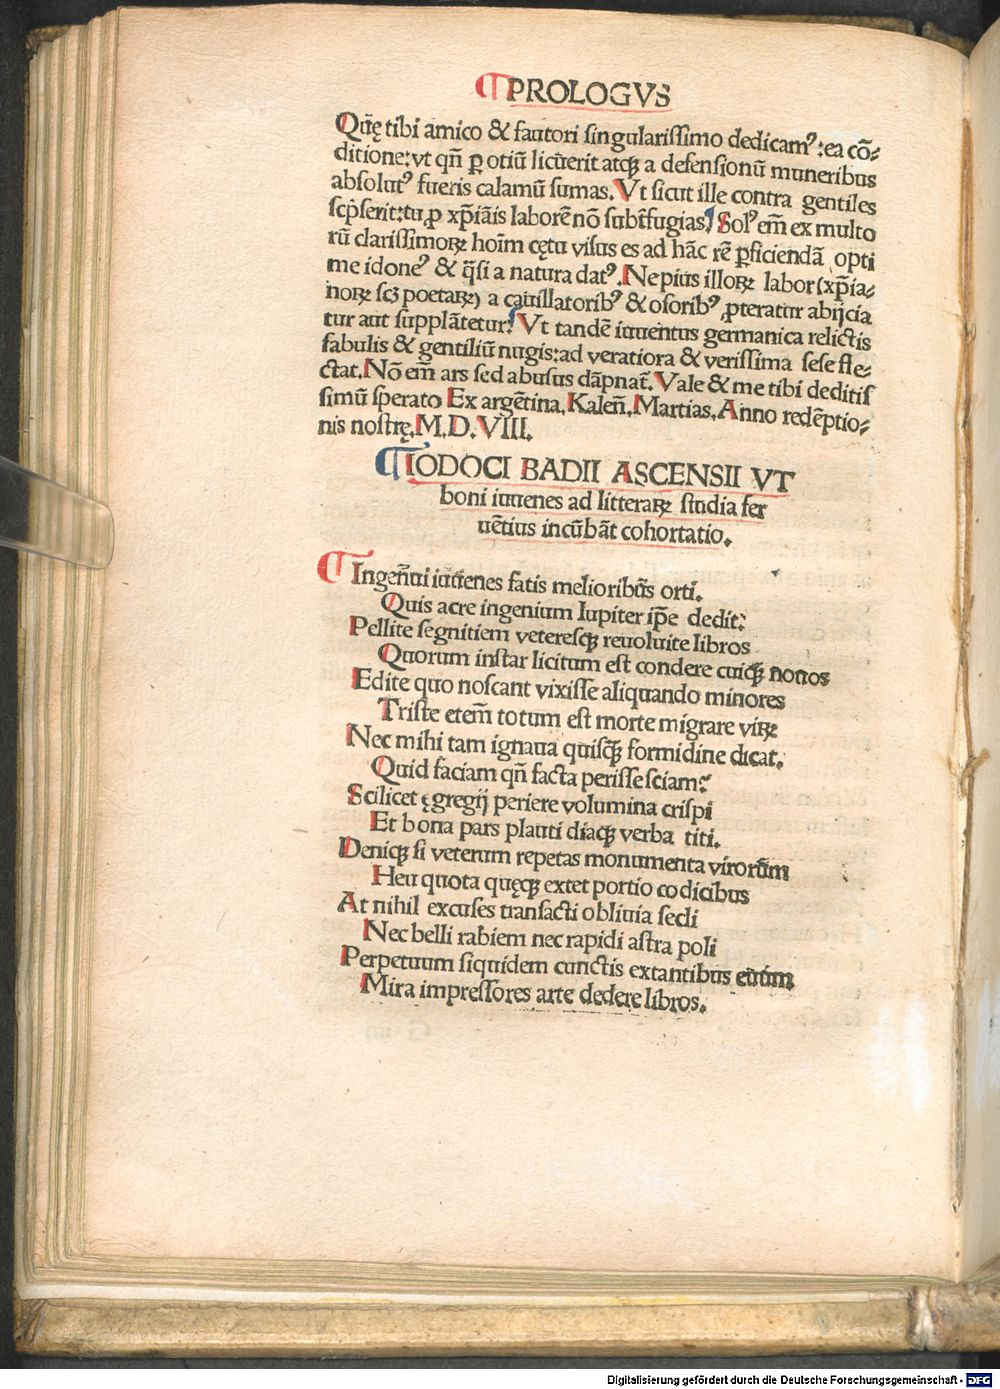 ¶PROLOGVS
Qūę tibi amico & fautori singularissimo dedicamꝰ: ea cō-
ditione: vt qn̄ ꝑ otiū licuerit atqꝫ a defensionū muneribus
absolutꝰ fueris calamū sumas. Vt sicut ille contra gentiles
scp̄serit: tu ꝓ xp̄iāis laborē nō subt̄fugias. Solꝰ em̄ ex multo
rū clarissimoꝝ hoīm cętu visus es ad hāc rē ꝑficiendā opti
me idoneꝰ & q̄si a natura datꝰ. Ne pius illoꝝ labor (xp̄ia-
noꝝ scꝫ poetaꝝ) a cauillatoribꝰ & osoribꝰ ꝓteratur abijcia
tur aut supplātetur. Vt tandē iuuentus germanica relictis
fabulis & gentiliū nugis: ad veratiora & verissima sese fle-
ctat. Nō em̄ ars sed abusus dāpnat̄. Vale & me tibi deditis
simū sperato Ex argētina. Kalen̄. Martias. Anno redēptio-
nis nostrę. M.D.VIII.
¶IODOCI BADII ASCENSII VT
boni iuuenes ad litteraꝝ studia fer
uētius incūbāt cohortatio.
¶ Ingen̄ui iuuenes fatis melioribus orti.
Quis acre ingenium Iupiter ip̄e dedit:
Pellite segnitiem veteresqꝫ reuoluite libros
Quorum instar licitum est condere cuiqꝫ nouos
Edite quo noscant vixisse aliquando minores
Triste etem̄ totum est morte migrare viꝝ
Nec mihi tam ignaua quisqꝫ formidine dicat.
Quid faciam qn̄ facta perisse sciam:
Scilicet ęgregij periere volumina crispi
Et bona pars plauti diaqꝫ verba titi.
Deniqꝫ si veterum repetas monumenta virorum
Heu quota quęqꝫ extet portio codicibus
At nihil excuses transacti obliuia secli
Nec belli rabiem nec rapidi astra poli
Perpetuum siquidem cunctis extantibus euum
Mira impressores arte dedere libros.
Digitalisierung gefördert durch die Deutsche Forschungsgemeinschaft - DFG